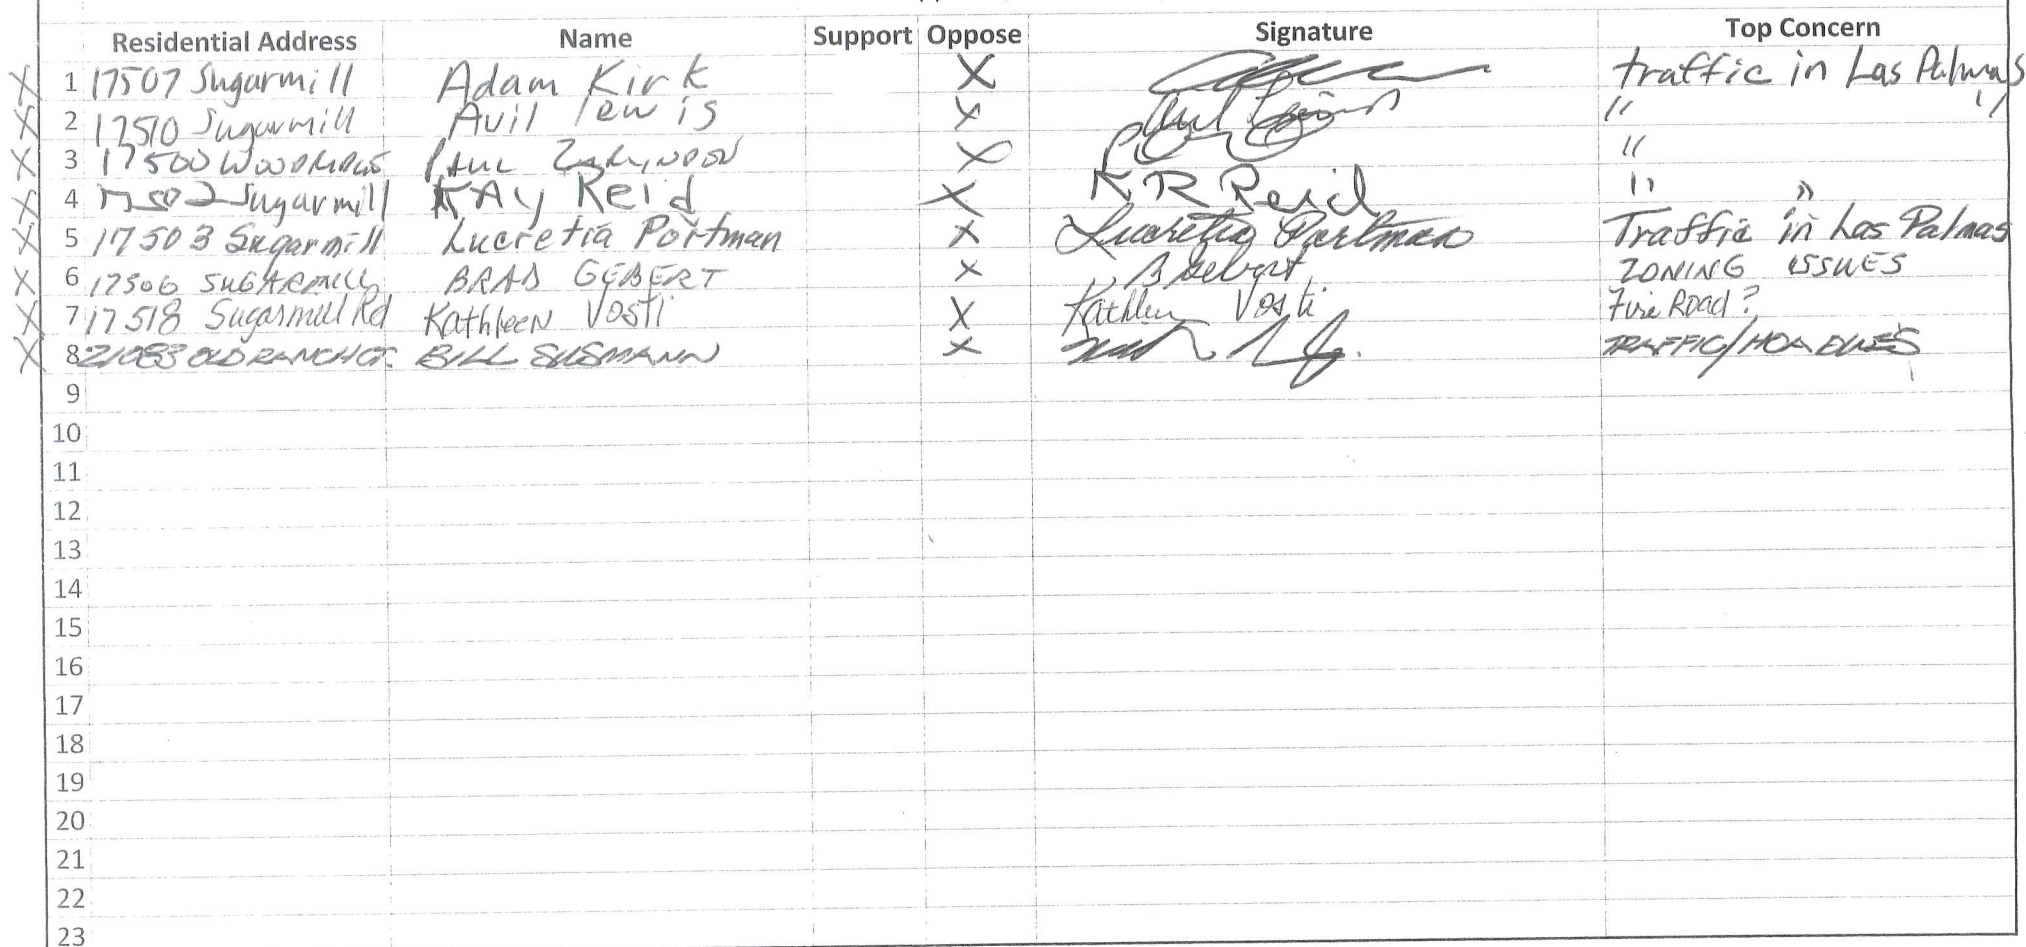 Residential Address Name Support Oppose Signature Top Concern
X 1 17507 Sugarmill Adam Kirk X traffic in Las Palmas
X 2 17510 Sugarmill Avil lewis X " "
X 3 17500 Paul X "
X 4 17502 Sugarmill KAy Reid X K R Reid " "
X 5 17503 Sugarmill Lucretia Portman X Lucretia Portman Traffic in Las Palmas
X 6 17506 SUGARMILL BRAD GEBERT X B Gebert ZONING ISSUES
X 7 17518 Sugarmill Rd Kathleen Vosti X Kathleen Vosti Fire Road?
X 8 21083 OLD RANCH CT. BILL SUSMANN X TRAFFIC/HOA DUES
9
10
11
12
13
14
15
16
17
18
19
20
21
22
23